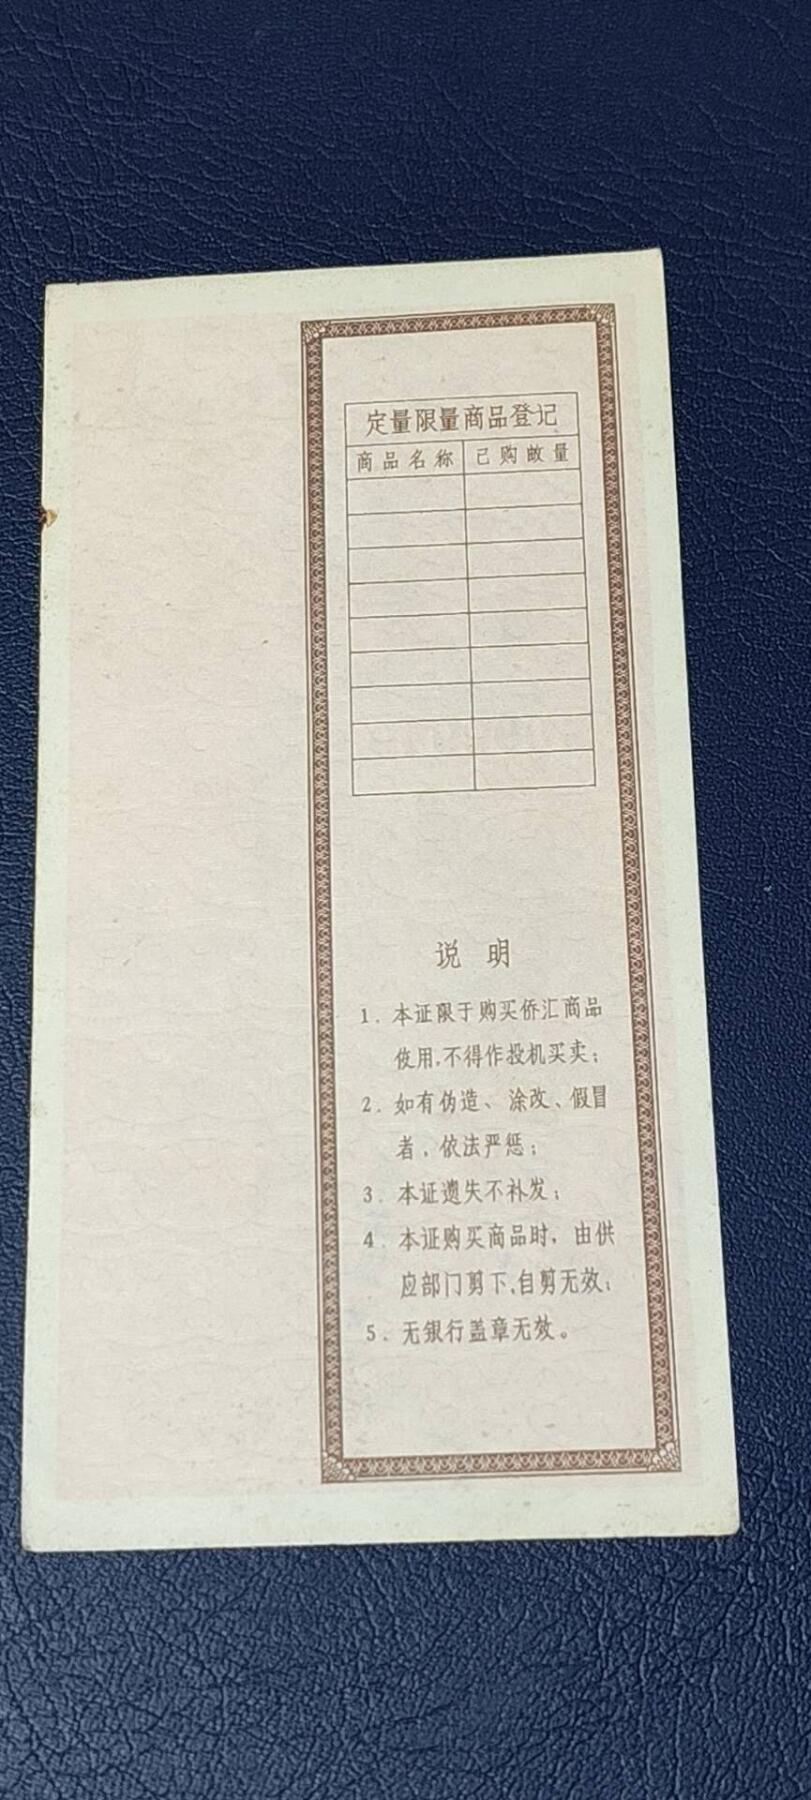 定量限量商品登记
商品名称 已购数量
说明
1．本证限于购买侨汇商品
使用，不得作投机买卖；
2．如有伪造、涂改、假冒
者，依法严惩；
3．本证遗失不补发；
4．本证购买商品时，由供
应部门剪下，自剪无效；
5．无银行盖章无效。